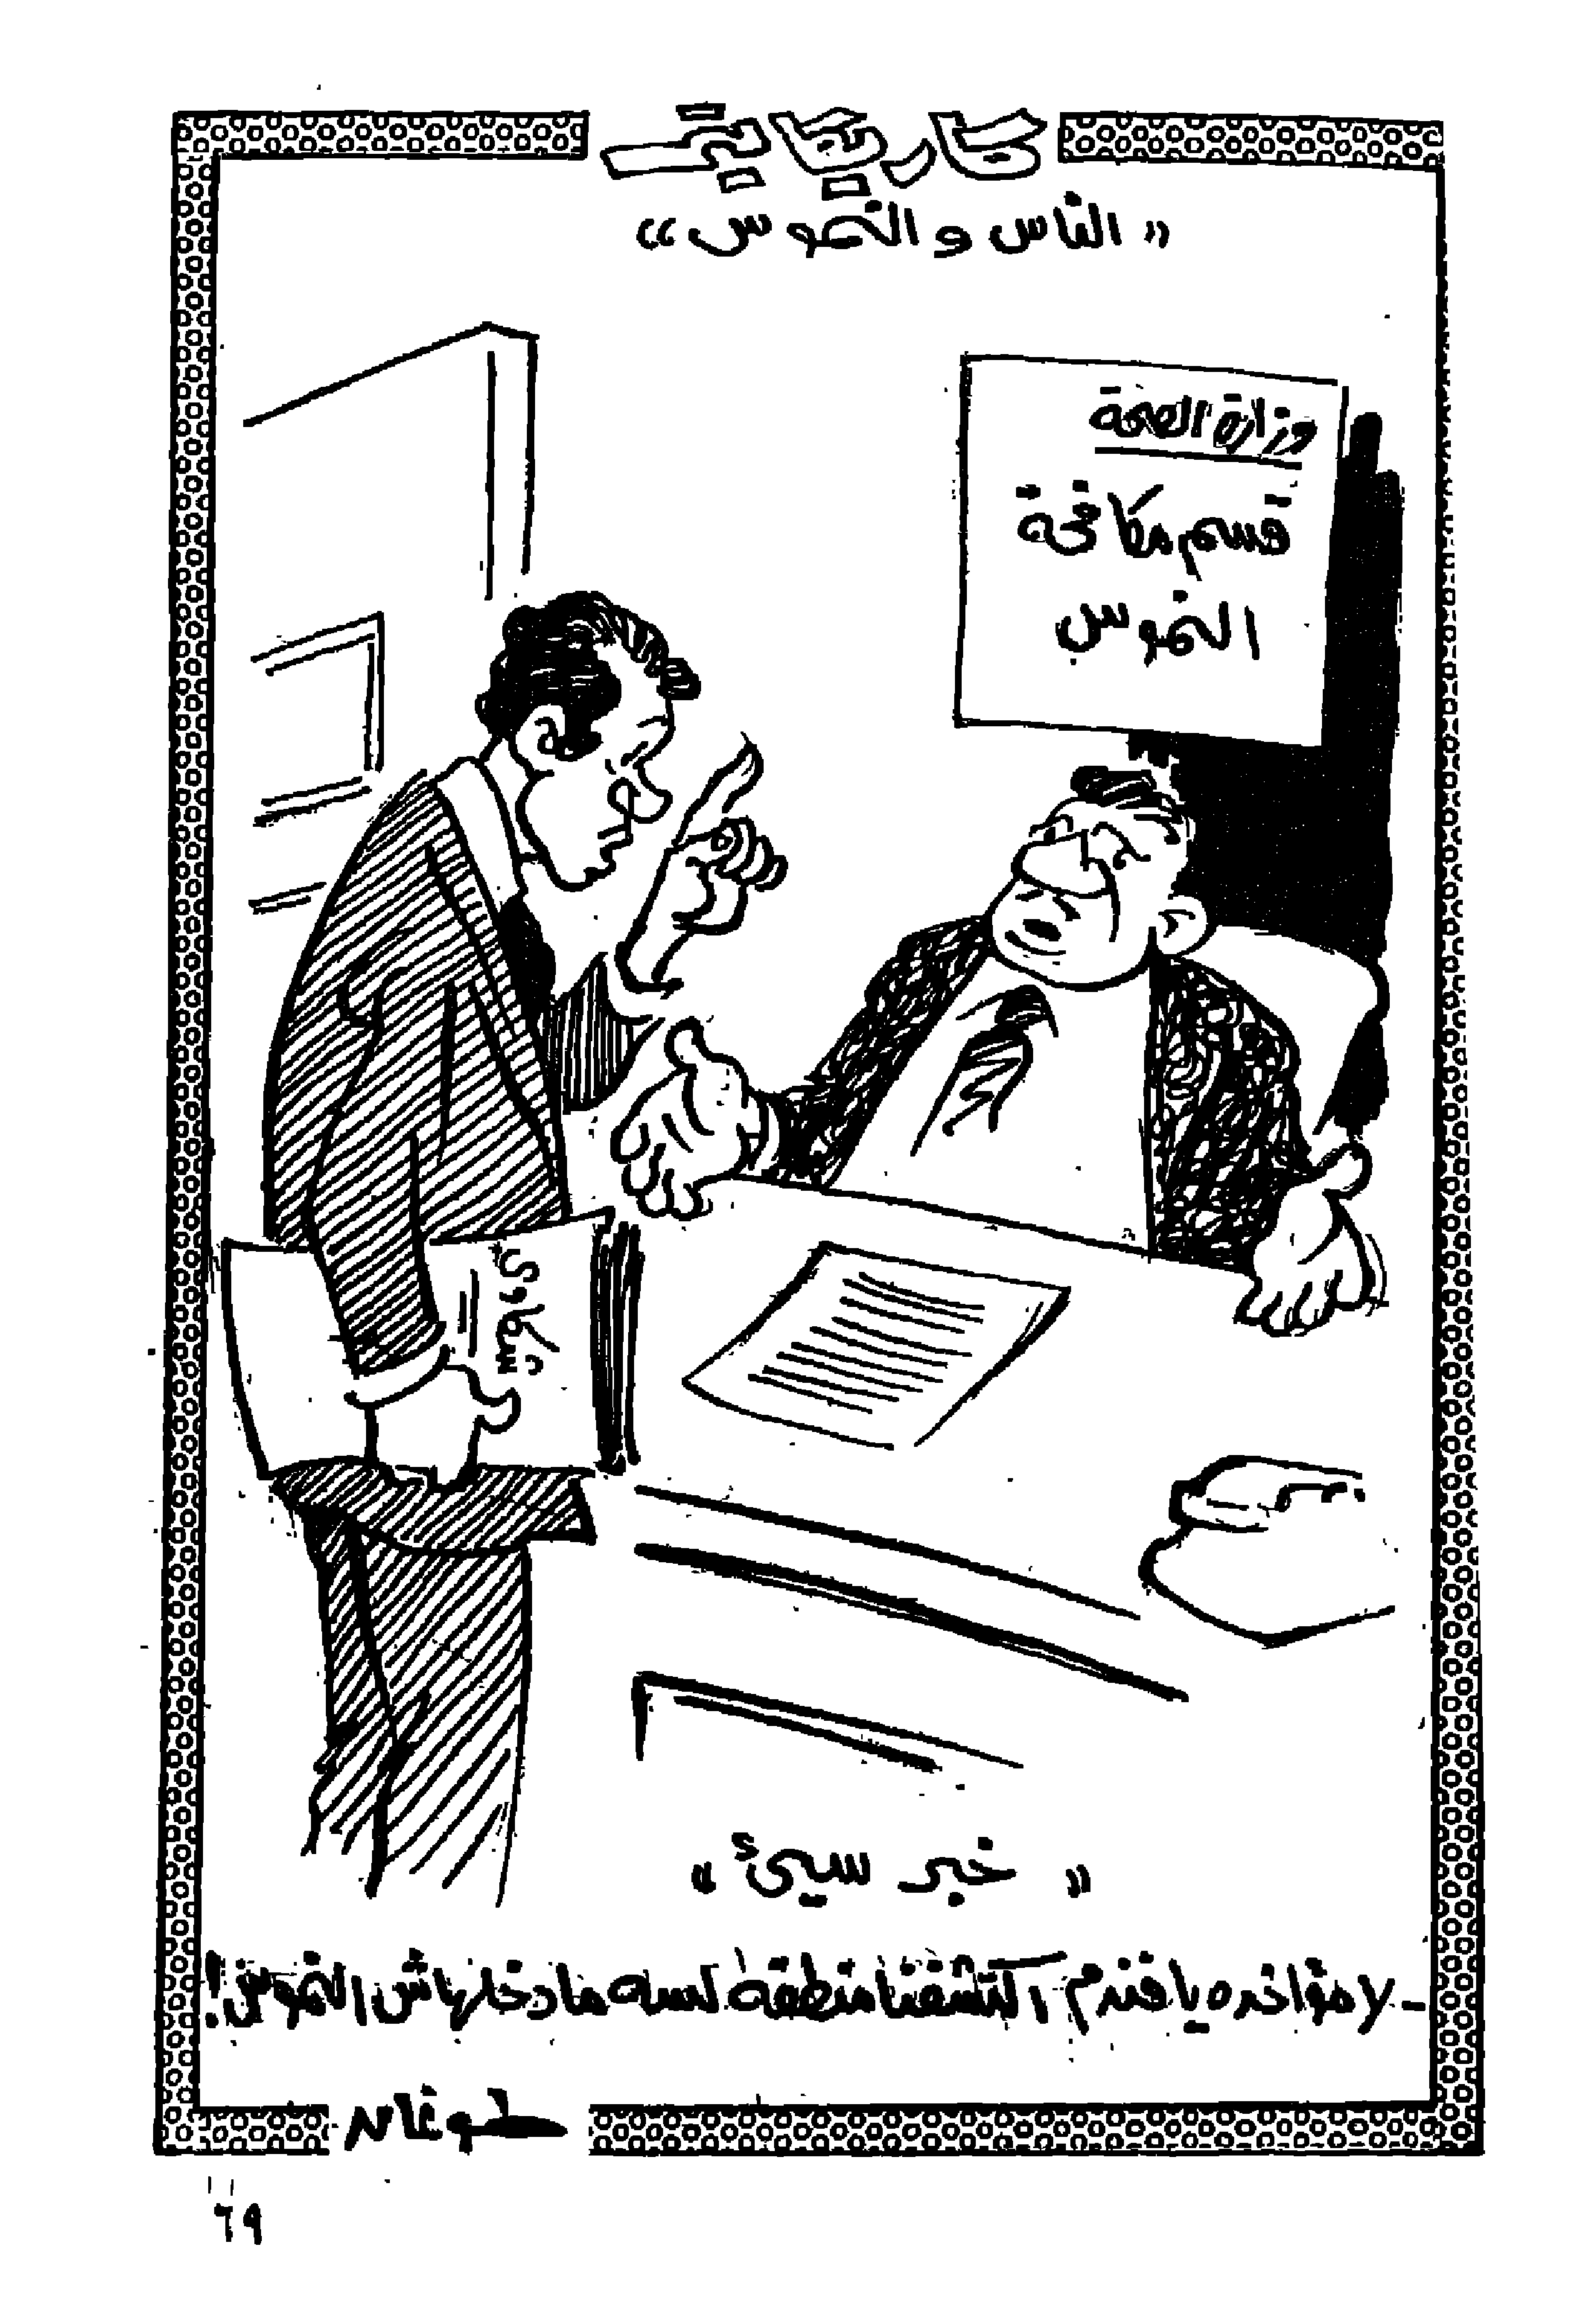 كاريكاتير
« الناس والناموس »
وزارة الصحة
قسم مكافحة
الناموس
شكاوى
« خبر سيئ »
- لا مؤاخذه يا فندم اكتشفنا منطقة لسه ما دخلهاش الناموس !
طوغان
٦٩